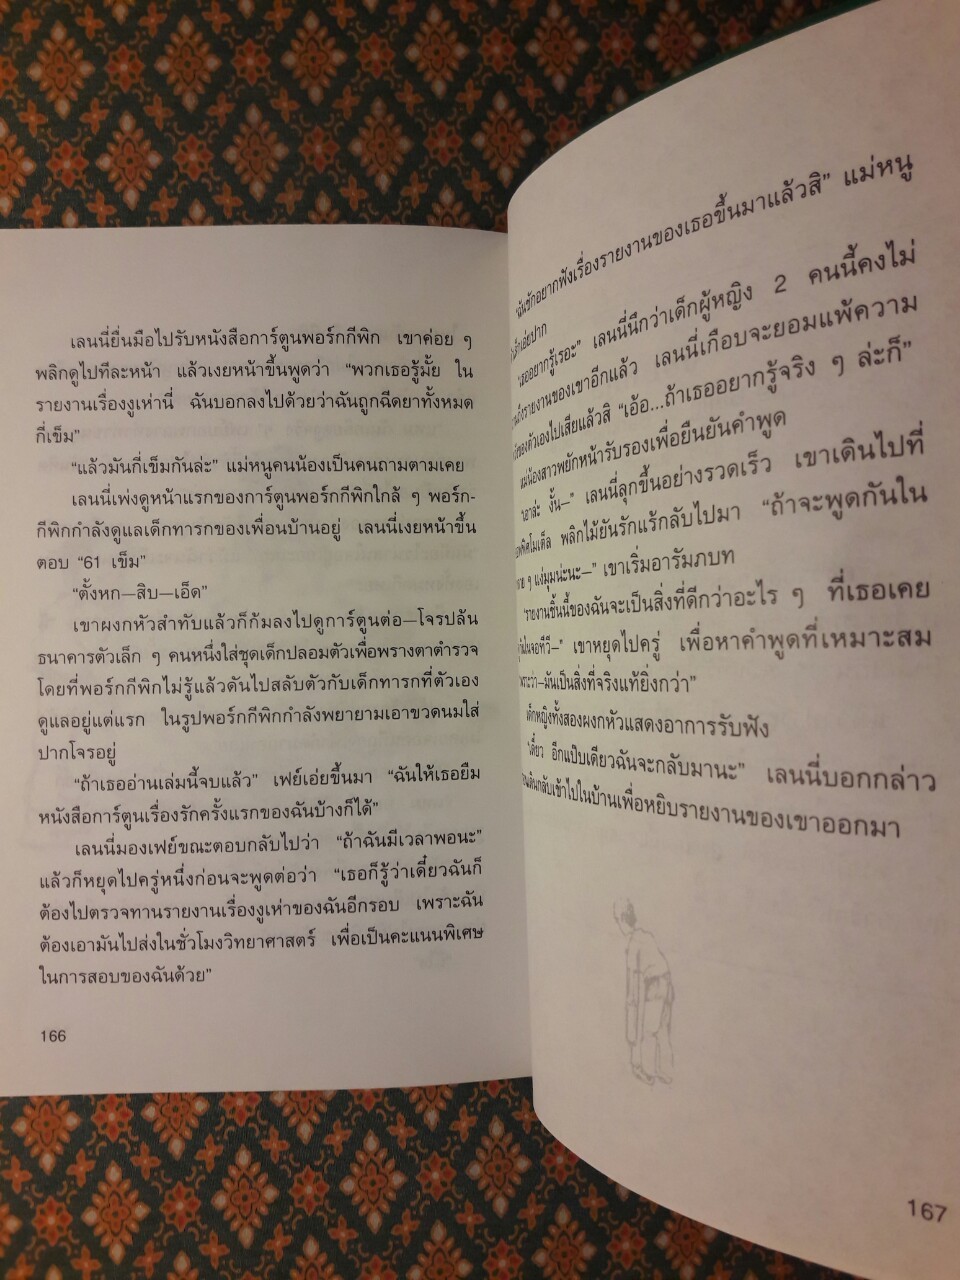 เลนนี่ยื่นมือไปรับหนังสือการ์ตูนพอร์กกีพิก เขาค่อย ๆ
พลิกดูไปทีละหน้า แล้วเงยหน้าขึ้นพูดว่า “พวกเธอรู้มั้ย ใน
รายงานเรื่องงูเห่านี่ ฉันบอกลงไปด้วยว่าฉันถูกฉีดยาทั้งหมด
กี่เข็ม”
“แล้วมันกี่เข็มกันล่ะ” แม่หนูคนน้องเป็นคนถามตามเคย
เลนนี่เพ่งดูหน้าแรกของการ์ตูนพอร์กกีพิกใกล้ ๆ พอร์ก-
กีพิกกำลังดูแลเด็กทารกของเพื่อนบ้านอยู่ เลนนี่เงยหน้าขึ้น
ตอบ “61 เข็ม”
“ตั้งหก—สิบ—เอ็ด”
เขาผงกหัวสำทับแล้วก็ก้มลงไปดูการ์ตูนต่อ—โจรปล้น
ธนาคารตัวเล็ก ๆ คนหนึ่งใส่ชุดเด็กปลอมตัวเพื่อพรางตาตำรวจ
โดยที่พอร์กกีพิกไม่รู้แล้วดันไปสลับตัวกับเด็กทารกที่ตัวเอง
ดูแลอยู่แต่แรก ในรูปพอร์กกีพิกกำลังพยายามเอาขวดนมใส่
ปากโจรอยู่
“ถ้าเธออ่านเล่มนี้จบแล้ว” เฟย์เอ่ยขึ้นมา “ฉันให้เธอยืม
หนังสือการ์ตูนเรื่องรักครั้งแรกของฉันบ้างก็ได้”
เลนนี่มองเฟย์ขณะตอบกลับไปว่า “ถ้าฉันมีเวลาพอนะ”
แล้วก็หยุดไปครู่หนึ่งก่อนจะพูดต่อว่า “เธอก็รู้ว่าเดี๋ยวฉันก็
ต้องไปตรวจทานรายงานเรื่องงูเห่าของฉันอีกรอบ เพราะฉัน
ต้องเอามันไปส่งในชั่วโมงวิทยาศาสตร์ เพื่อเป็นคะแนนพิเศษ
ในการสอบของฉันด้วย”
166
“ฉันชักอยากฟังเรื่องรายงานของเธอขึ้นมาแล้วสิ” แม่หนู
“เธออยากรู้เรอะ” เลนนี่นึกว่าเด็กผู้หญิง 2 คนนี้คงไม่
รายงานของเขาอีกแล้ว เลนนี่เกือบจะยอมแพ้ความ
ของตัวเองไปเสียแล้วสิ “เอ้อ...ถ้าเธออยากรู้จริง ๆ ล่ะก็”
แม่น้องสาวพยักหน้ารับรองเพื่อยืนยันคำพูด
“เอาล่ะ งั้น—” เลนนี่ลุกขึ้นอย่างรวดเร็ว เขาเดินไปที่
พลิกไม้ยันรักแร้กลับไปมา “ถ้าจะพูดกันใน
ๆ แง่มุมน่ะนะ—” เขาเริ่มอารัมภบท
“รายงานชิ้นนี้ของฉันจะเป็นสิ่งที่ดีกว่าอะไร ๆ ที่เธอเคย
ในจอทีวี—” เขาหยุดไปครู่ เพื่อหาคำพูดที่เหมาะสม
“เพราะว่า—มันเป็นสิ่งที่จริงแท้ยิ่งกว่า”
เด็กหญิงทั้งสองผงกหัวแสดงอาการรับฟัง
“เดี๋ยว อีกแป๊บเดียวฉันจะกลับมานะ” เลนนี่บอกกล่าว
กลับเข้าไปในบ้านเพื่อหยิบรายงานของเขาออกมา
167